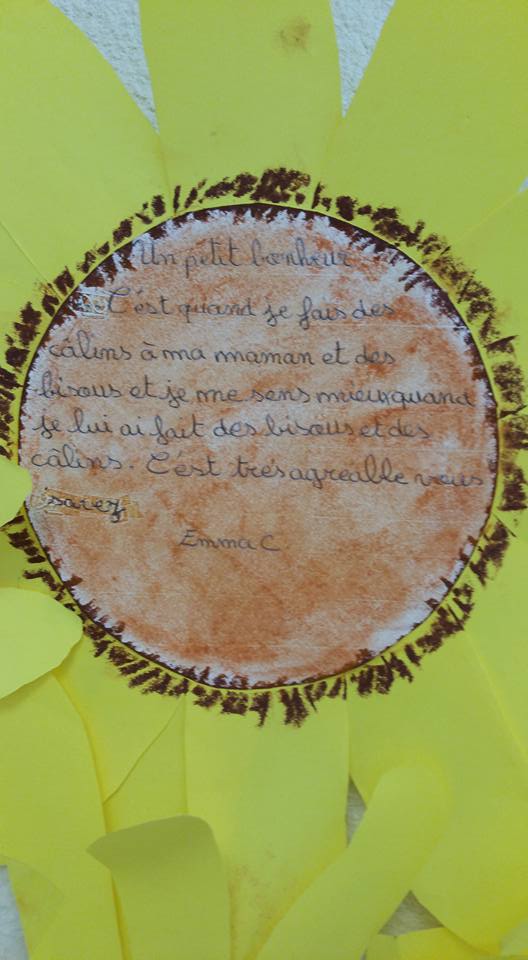 Un petit bonheur
C'est quand je fais des
câlins à ma maman et des
bisous et je me sens mieux quand
je lui ai fait des bisous et des
câlins. C'est très agreable vous
savez
Emma C